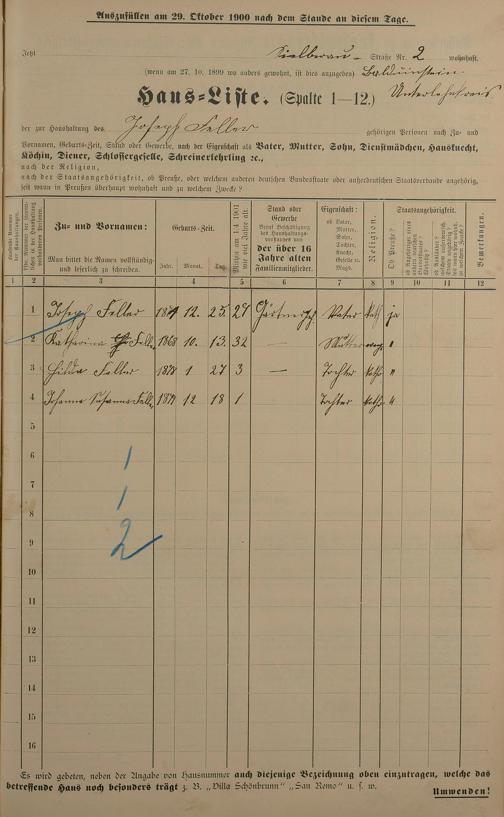 Auszufüllen am 29. Oktober 1900 nach dem Stande an diesem Tage.
Jetzt Straße Nr. 2 wohnhaft.
(wenn am 27. 10. 1899 wo anders gewohnt, ist dies anzugeben) Balduinstein
Unterlahnkreis
Haus-Liste. (Spalte 1—12.)
der zur Haushaltung des Joseph Feller gehörigen Personen nach Zu- und
Vornamen, Geburts-Zeit, Stand oder Gewerbe, nach der Eigenschaft als Vater, Mutter, Sohn, Dienstmädchen, Hausknecht,
Köchin, Diener, Schlossergeselle, Schreinerlehrling ꝛc.,
nach der Religion,
nach der Staatsangehörigkeit, ob Preuße, oder welchem anderen deutschen Bundesstaate oder außerdeutschen Staatsverbande angehörig,
seit wann in Preußen überhaupt wohnhaft und zu welchem Zwecke?
Zu- und Vornamen:
Man bittet die Namen vollständig und leserlich zu schreiben.
Geburts-Zeit.
Jahr. Monat. Tag.
Stand oder Gewerbe
der über 16 Jahre alten Familienmitglieder.
Eigenschaft:
ob Vater, Mutter, Sohn, Tochter, Knecht, Geselle u. Magd.
Religion.
Staatsangehörigkeit.
Ob Preuße?
Bemerkungen.
1 2 3 4 5 6 7 8 9 10 11 12
1 Joseph Feller 12. 25. Vater kath. ja
2 Katharina 1868 10. 13. 32 — Mutter evang. "
3 Hilda Feller 1 27 3 — Tochter kath. "
4 Johanna Susanna Feller 12 18 1 Tochter kath. "
5
6
7
8
9
10
11
12
13
14
15
16
1
1
2
Es wird gebeten, neben der Angabe von Hausnummer auch diejenige Bezeichnung oben einzutragen, welche das
betreffende Haus noch besonders trägt z. B. „Villa Schönbrunn" „San Remo" u. s. w.
Umwenden!